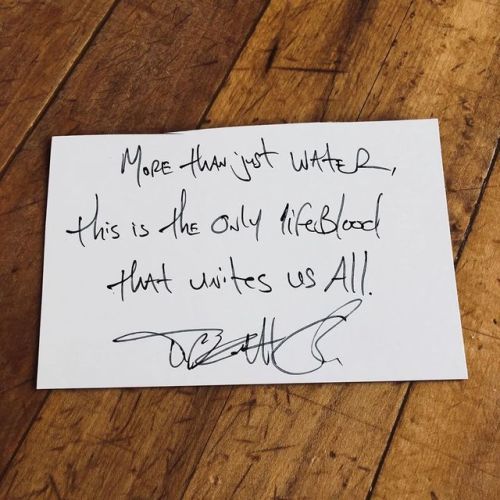 More than just WATER,
this is the Only lifeBlood
that unites us All.